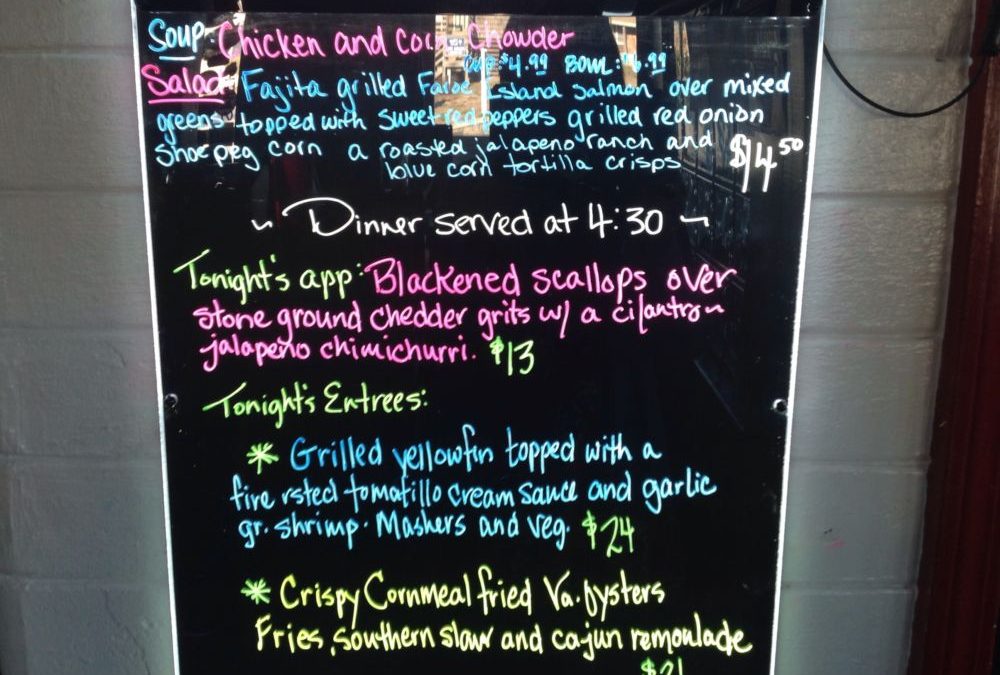 Soup: Chicken and Corn Chowder
Cup: $4.99 Bowl: $6.99
Salad: Fajita grilled Faroe Island Salmon over mixed
greens topped with sweet red peppers grilled red onion
Shoepeg corn a roasted jalapeno ranch and
blue corn tortilla crisps $14.50
~ Dinner served at 4:30 ~
Tonight's app: Blackened scallops over
stone ground chedder grits w/ a cilantro~
jalapeño chimichurri. $13
Tonight's Entrees:
* Grilled yellowfin topped with a
fire rsted tomatillo cream sauce and garlic
gr. shrimp. Mashers and veg. $24
* Crispy Cornmeal fried Va. Oysters
Fries, southern slaw and cajun remoulade
$21